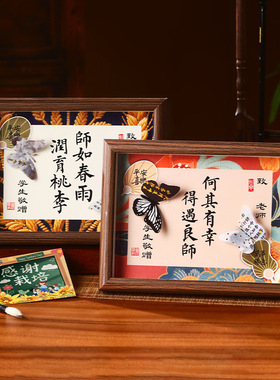 師如春雨
潤育桃李
学生敬赠
致
老师
何其有幸
得遇良師
学生敬赠
感谢
栽培